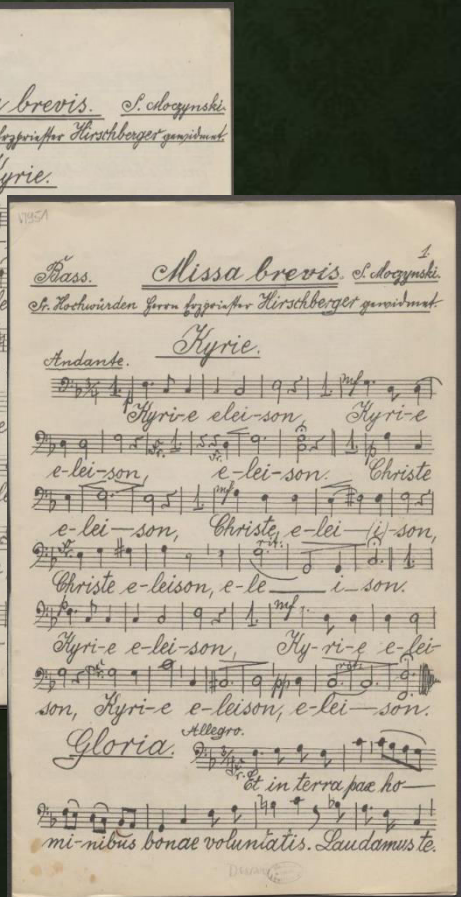 brevis. S. Moczynski.
Erzpriester Hirschberger gewidmet.
Kyrie.
1795A
1
Bass. Missa brevis. S. Moczynski.
Sr. Hochwürden Herrn Erzpriester Hirschberger gewidmet.
Kyrie.
Andante.
mf
Kyri-e elei-son, Kyri-e
e-lei-son, e-lei-son. Christe
mf
e-lei—son, Christe, e-lei—(i)-son,
rit.
Christe e-leison, e-le—i—son.
mf
Kyri-e e-lei-son, Ky-ri-e e-lei-
pp
son, Kyri-e e-leison, e-lei—son.
Gloria. Allegro.
Et in terra pax ho—
mi-nibus bonae voluntatis. Laudamus te.